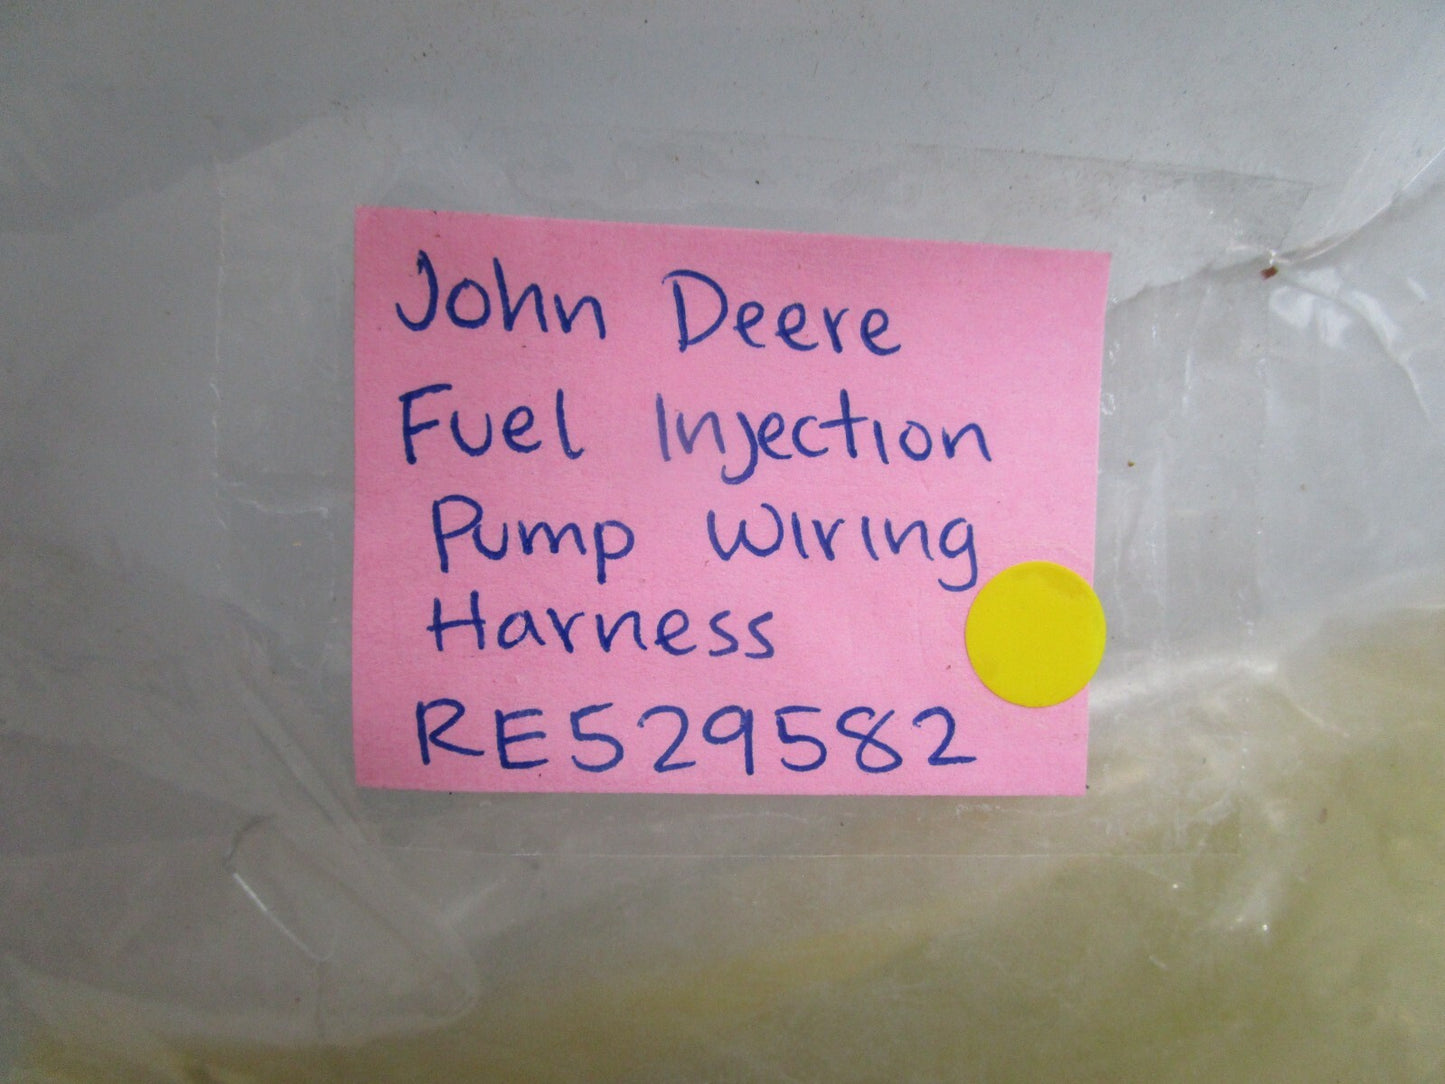 John Deere
Fuel Injection
Pump Wiring
Harness
RE529582